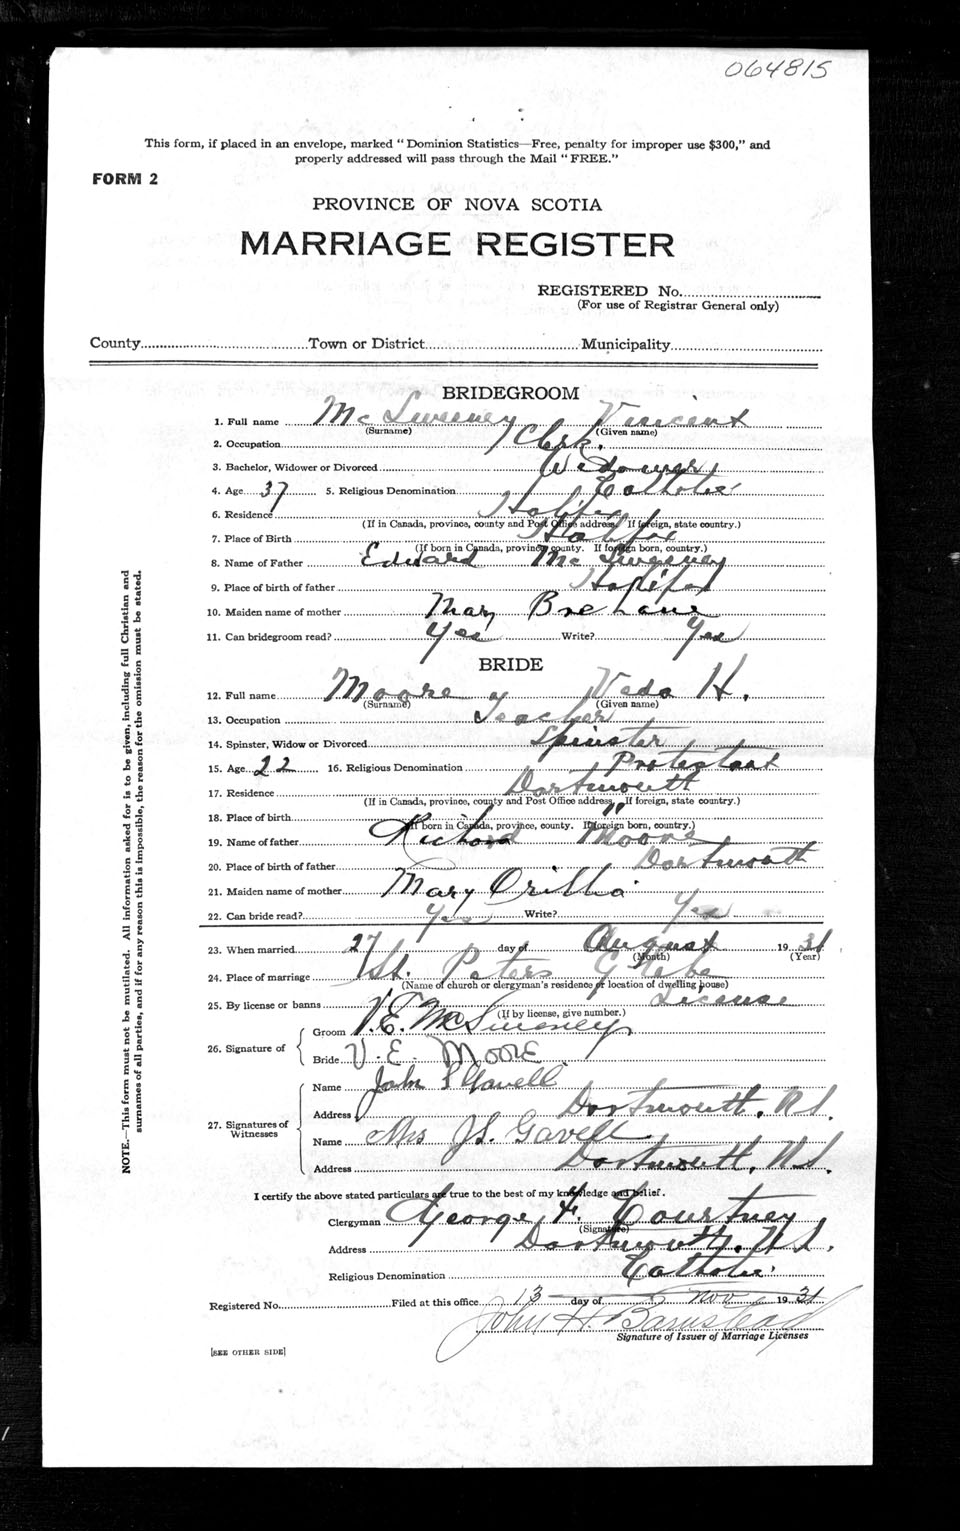 064815
This form, if placed in an envelope, marked “Dominion Statistics—Free, penalty for improper use $300,” and
properly addressed will pass through the Mail “FREE.”
FORM 2
PROVINCE OF NOVA SCOTIA
MARRIAGE REGISTER
REGISTERED No.
(For use of Registrar General only)
County Town or District Municipality
BRIDEGROOM
1. Full name McSweeney Vincent
(Surname) (Given name)
2. Occupation Clerk.
3. Bachelor, Widower or Divorced Widower
4. Age 37 5. Religious Denomination Catholic
6. Residence Halifax
(If in Canada, province, county and Post Office address. If foreign, state country.)
7. Place of Birth Halifax
(If born in Canada, province, county. If foreign born, country.)
8. Name of Father Edward McSweeney
9. Place of birth of father Halifax
10. Maiden name of mother Mary
11. Can bridegroom read? Yes Write? Yes
BRIDE
12. Full name Moore Veda H.
(Surname) (Given name)
13. Occupation Teacher
14. Spinster, Widow or Divorced Spinster
15. Age 22 16. Religious Denomination Protestant
17. Residence Dartmouth
(If in Canada, province, county and Post Office address. If foreign, state country.)
18. Place of birth "
(If born in Canada, province, county. If foreign born, country.)
19. Name of father Richard Moore
20. Place of birth of father Dartmouth
21. Maiden name of mother Mary
22. Can bride read? Yes Write? Yes
23. When married 27 day of August 1931
(Month) (Year)
24. Place of marriage St. Peters Glebe
(Name of church or clergyman's residence or location of dwelling house)
25. By license or banns License
(If by license, give number.)
26. Signature of
Groom V.E. McSweeney
Bride V. E. MOORE
27. Signatures of Witnesses
Name John S Gavell
Address Dartmouth, N.S.
Name Mrs J.S. Gavell
Address Dartmouth, N.S.
I certify the above stated particulars are true to the best of my knowledge and belief.
Clergyman George F. Courtney
(Signature)
Address Dartmouth, N.S.
Religious Denomination Catholic
Registered No. Filed at this office 13 day of Nov 1931
John H. Barnstead
Signature of Issuer of Marriage Licenses
[SEE OTHER SIDE]
NOTE.—This form must not be mutilated. All information asked for is to be given, including full Christian and
surnames of all parties, and if for any reason this is impossible, the reason for the omission must be stated.